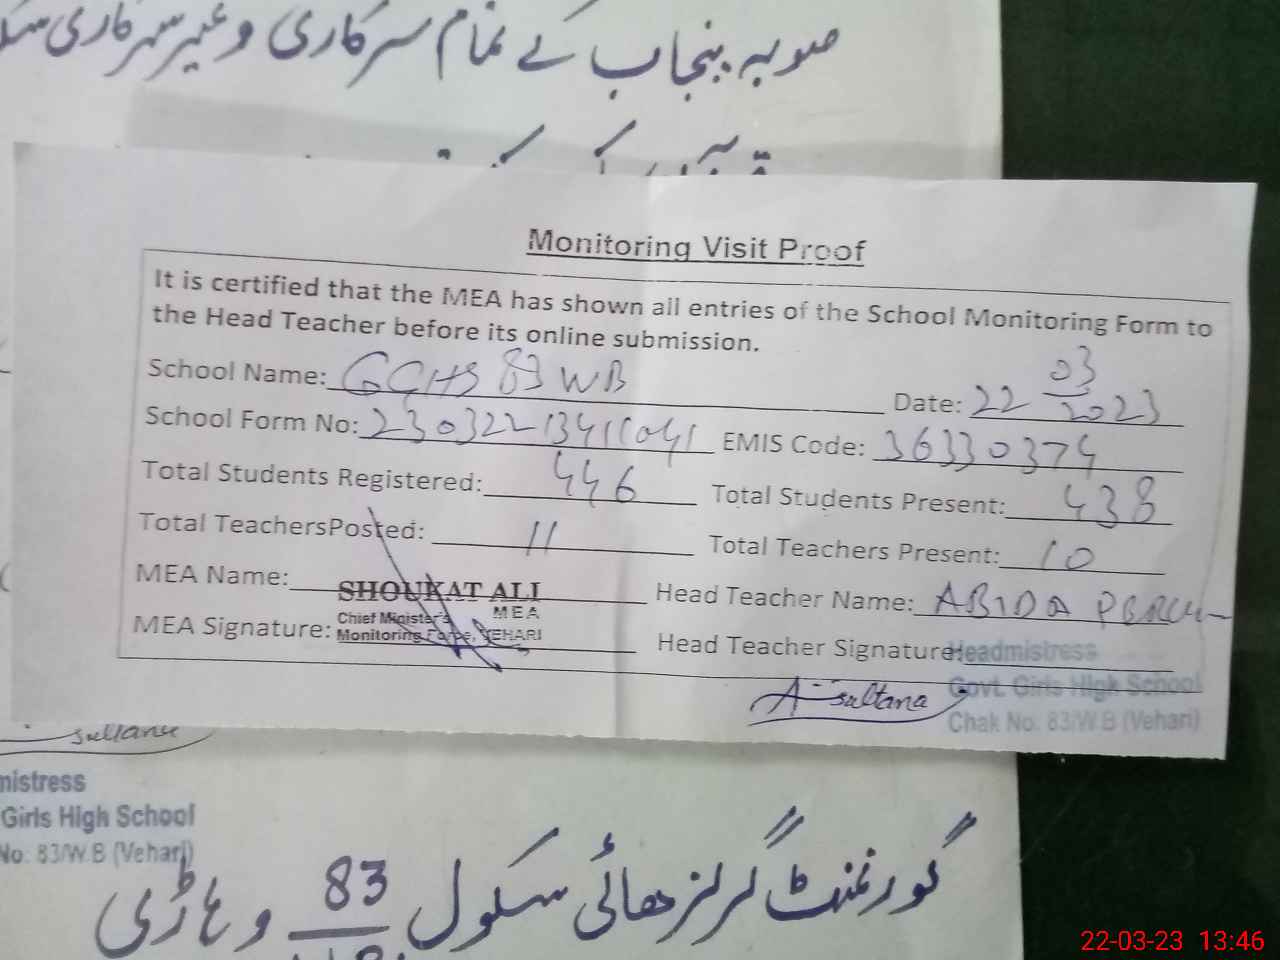 صوبہ پنجاب کے تمام سرکاری و غیر سرکاری
Monitoring Visit Proof
It is certified that the MEA has shown all entries of the School Monitoring Form to
the Head Teacher before its online submission.
School Name: GGHS 83 WB Date: 22 03 2023
School Form No: 23032213411041 EMIS Code: 36330374
Total Students Registered: 446 Total Students Present: 438
Total TeachersPosted: 11 Total Teachers Present: 10
MEA Name: SHOUKAT ALI Head Teacher Name: ABIDA
MEA
Chief Minister's
Monitoring Force, VEHARI
MEA Signature: Head Teacher Signature:
Headmistress
Govt. Girls High School
Chak No. 83/W.B (Vehari)
A-Sultana
Sultana
mistress
Girls High School
No. 83/W.B (Vehari)
گورنمنٹ گرلز ھائی سکول 83 وہاڑی
22-03-23 13:46